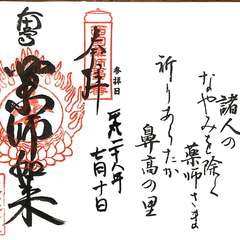 諸人の
なやみを除く
薬師さま
祈りあらたか
鼻高の里
参拝日
平成二十八年
七月十日
奉拝
薬師如来